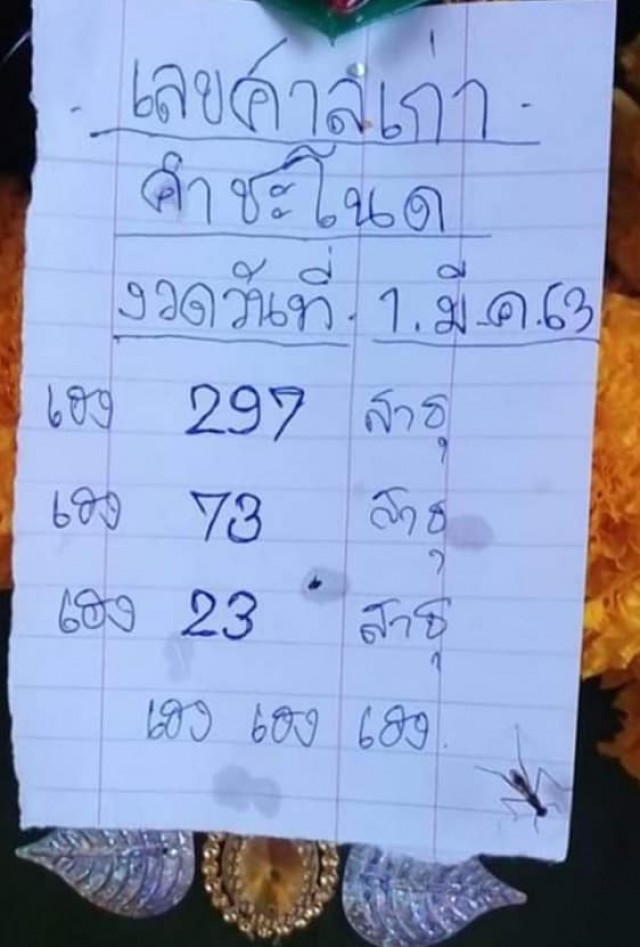 เลขศาลเก่า
คำชะโนด
งวดวันที่. 1.มี.ค.63
เฮง 297 สาธุ
เฮง 73 สาธุ
เฮง 23 สาธุ
เฮง เฮง เฮง.